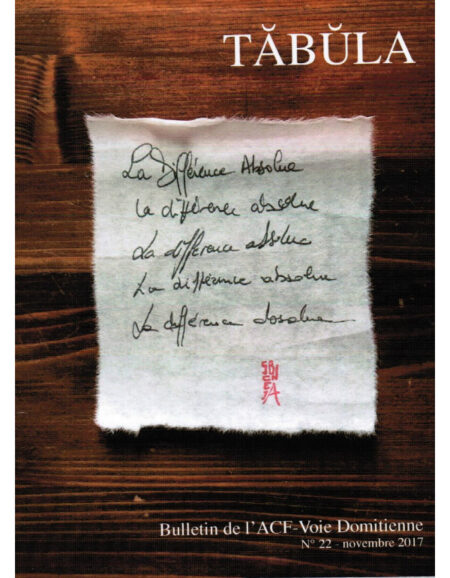 TĂBŬLA
La Différence Absolue
la différence absolue
La différence absolue
La différence absolue
La différence absolue
Bulletin de l'ACF-Voie Domitienne
N° 22 - novembre 2017